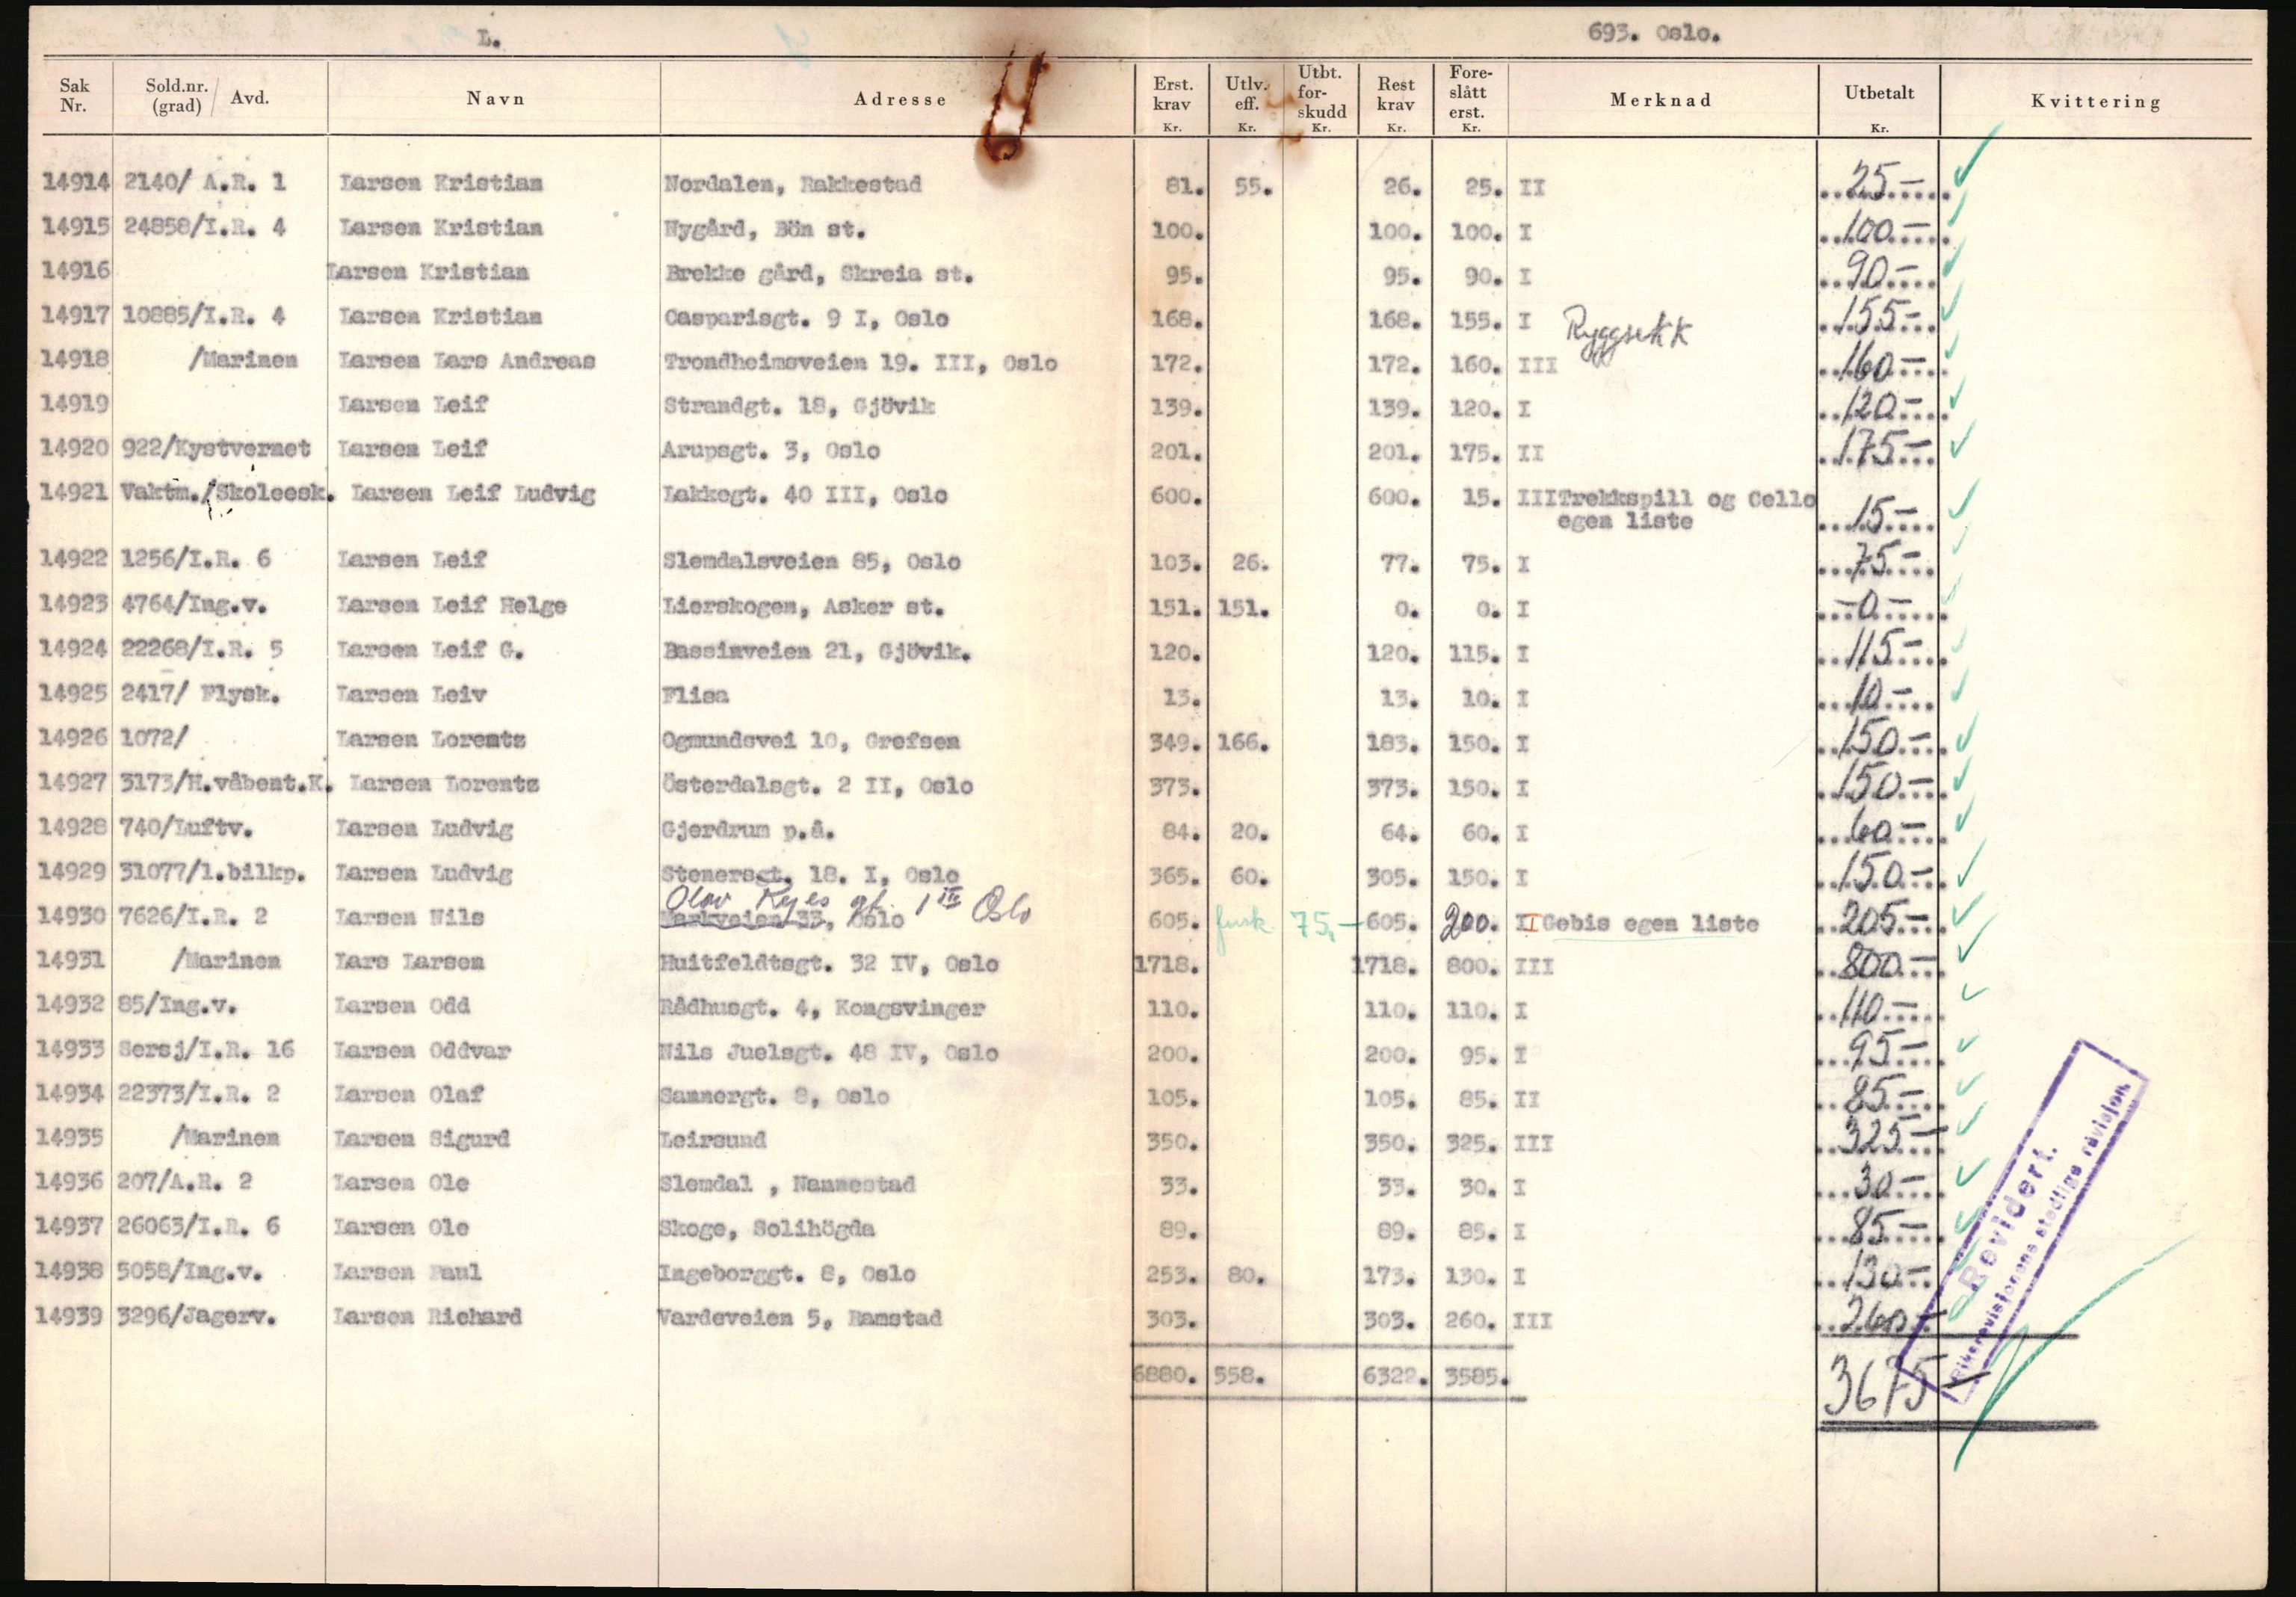 L. 693. Oslo.
Sak Nr. Sold.nr. (grad) / Avd. Navn Adresse Erst. krav Kr. Utlv. eff. Kr. Utbt. for-skudd Kr. Rest krav Kr. Fore-slått erst. Kr. Merknad Utbetalt Kr. Kvittering
14914 2140/ A.R. 1 Larsen Kristian Nordalen, Rakkestad 81. 55. 26. 25. II 25-
14915 24858/I.R. 4 Larsen Kristian Nygård, Bön st. 100. 100. 100. I 100.-
14916 Larsen Kristian Brekke gård, Skreia st. 95. 95. 90. I 90-
14917 10885/I.R. 4 Larsen Kristian Casparisgt. 9 I, Oslo 168. 168. 155. I Ryggsekk 155-
14918 /Marinen Larsen Lars Andreas Trondheimsveien 19. III, Oslo 172. 172. 160. III 160-
14919 Larsen Leif Strandgt. 18, Gjövik 139. 139. 120. I 120-
14920 922/Kystvernet Larsen Leif Arupsgt. 3, Oslo 201. 201. 175. II 175-
14921 Vaktm./Skoleesk. Larsen Leif Ludvig Lakkegt. 40 III, Oslo 600. 600. 15. III Trekkspill og Cello 15-
egen liste
14922 1256/I.R. 6 Larsen Leif Slemdalsveien 85, Oslo 103. 26. 77. 75. I 75-
14923 4764/Ing.v. Larsen Leif Helge Lierskogen, Asker st. 151. 151. 0. 0. I -0-
14924 22268/I.R. 5 Larsen Leif G. Bassinveien 21, Gjövik. 120. 120. 115. I 115-
14925 2417/ Flysk. Larsen Leiv Flisa 13. 13. 10. I 10-
14926 1072/ Larsen Lorentz Ogmundsvei 10, Grefsen 349. 166. 183. 150. I 150-
14927 3173/H.våbent.K. Larsen Lorentz Österdalsgt. 2 II, Oslo 373. 373. 150. I 150-
14928 740/Luftv. Larsen Ludvig Gjerdrum p.å. 84. 20. 64. 60. I 60-
14929 31077/1.bilkp. Larsen Ludvig Stenersgt. 18. I, Oslo 365. 60. 305. 150. I 150-
Olav Ryes gt. 1 Oslo
14930 7626/I.R. 2 Larsen Nils Markveien 33, Oslo 605. 75,- 605. 200. II Gebis egen liste 205-
14931 /Marinen Lars Larsen Huitfeldtsgt. 32 IV, Oslo 1718. 1718. 800. III 800-
14932 85/Ing.v. Larsen Odd Rådhusgt. 4, Kongsvinger 110. 110. 110. I 110-
14933 Sersj/I.R. 16 Larsen Oddvar Nils Juelsgt. 48 IV, Oslo 200. 200. 95. I 95-
14934 22373/I.R. 2 Larsen Olaf Sannergt. 8, Oslo 105. 105. 85. II 85-
14935 /Marinen Larsen Sigurd Leirsund 350. 350. 325. III 325-
14936 207/A.R. 2 Larsen Ole Slemdal , Nannestad 33. 33. 30. I 30-
14937 26063/I.R. 6 Larsen Ole Skoge, Solihögda 89. 89. 85. I 85-
14938 5058/Ing.v. Larsen Paul Ingeborggt. 8, Oslo 253. 80. 173. 130. I 130-
14939 3296/Jagerv. Larsen Richard Vardeveien 5, Ramstad 303. 303. 260. III 260-
6880. 558. 6322. 3585. 3675-
Revidert.
Riksrevisjonens stedlige revisjon